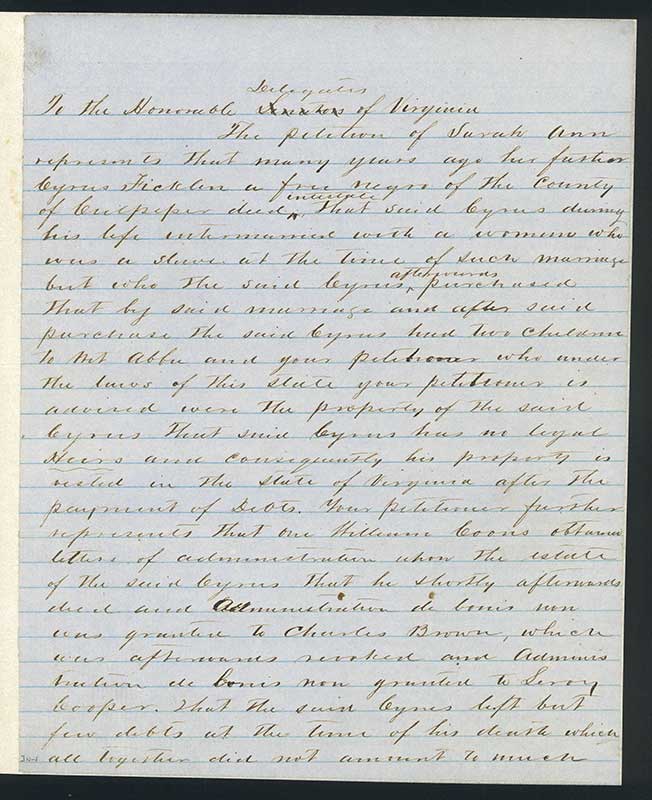 Delegates
To the Honorable Senators of Virginia
The petition of Sarah Ann
represents that many years ago her father
Cyrus Ficklen a free negro of the County
intestate
of Culpeper died, that said Cyrus during
his life intermarried with a woman who
was a slave at the time of such marriage
afterwards
but who the said Cyrus purchased
that by said marriage and after said
purchase the said Cyrus had two children
to wit Abbe and your petitioner who under
the laws of this state your petitioner is
advised were the property of the said
Cyrus that said Cyrus has no legal
Heirs and consequently his property is
vested in the state of Virginia after the
payment of Debts. Your petitioner further
represents that one William Coons obtained
letters of administration upon the estate
of the said Cyrus that he shortly afterwards
died and Administration de bonis non
was granted to Charles Brown, which
was afterwards revoked and Adminis
tration de bonis non granted to Leroy
Cooper. That the said Cyrus left but
few debts at the time of his death which
all together did not amount to much